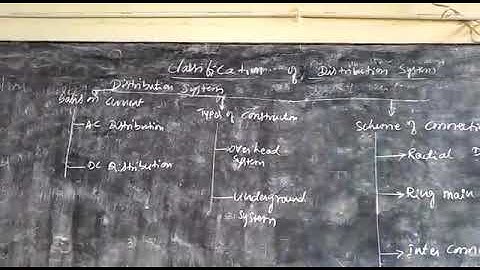 Classification of Distribution System
Distribution System
basis on Current
AC Distribution
DC Distribution
Types of Construction
Overhead
System
Underground
System
Scheme of Connectio
Radial D
Ring main
inter Conne